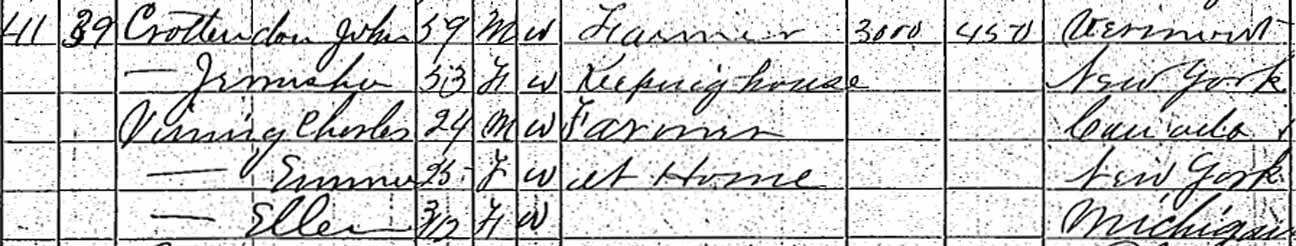 41 39 Crottendon John 59 M W Farmer 3000 450 Vermont
— Jerusha 53 F W Keeping house New York
Vining Charles 24 M W Farmer Canada
— Emma 25 F W at Home New York
— Ellen 3/12 F W Michigan